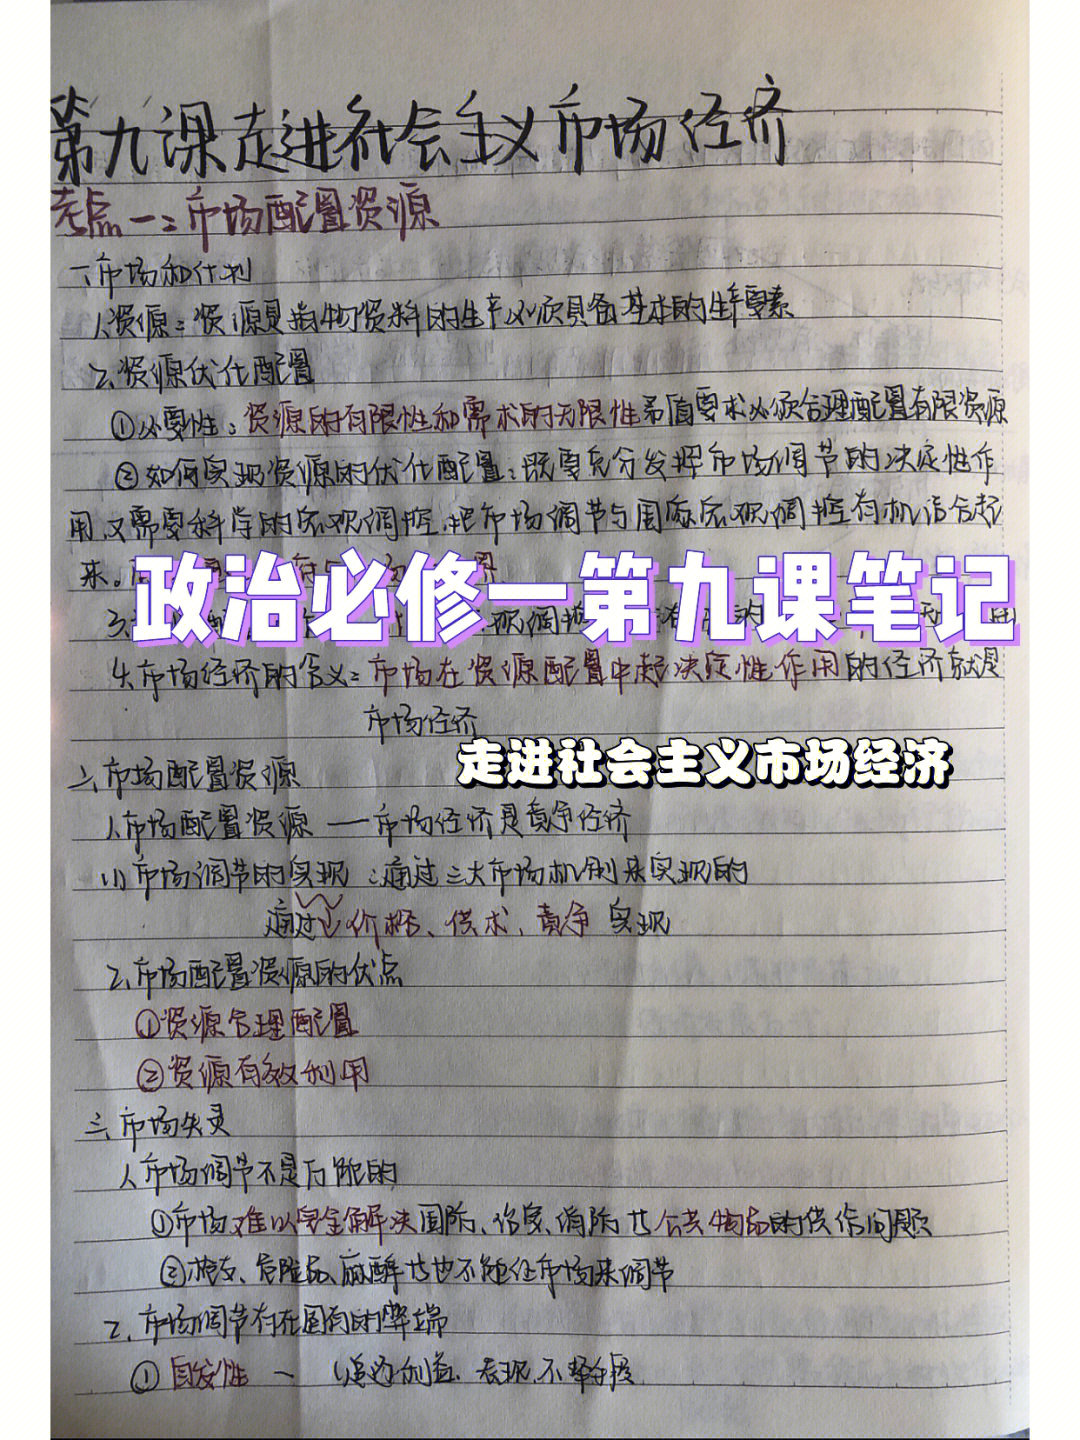 第九课走进社会主义市场经济
考点一:市场配置资源
一、市场和计划
1、资源:资源是指物资料的生产必须具备基本的生产要素
2、资源优化配置
①必要性:资源的有限性和需求的无限性矛盾要求必须合理配置有限资源
②如何实现资源的优化配置:既要充分发挥市场调节的决定性作
用,又需要科学的宏观调控,把市场调节与国家宏观调控有机结合起
来。
政治必修一第九课笔记
3、
4、市场经济的含义:市场在资源配置中起决定性作用的经济就是
市场经济
走进社会主义市场经济
二、市场配置资源
1、市场配置资源——市场经济是竞争经济
(1)市场调节的实现:通过三大市场机制来实现的
通过价格、供求、竞争实现
2、市场配置资源的优点
①资源合理配置
②资源有效利用
三、市场失灵
1、市场调节不是万能的
①市场难以完全解决国防、治安、消防等公共物品的供给问题
②枪支、危险品、麻醉等也不能任市场来调节
2、市场调节存在固有的弊端
①自发性— 追逐利益.表现.不择手段